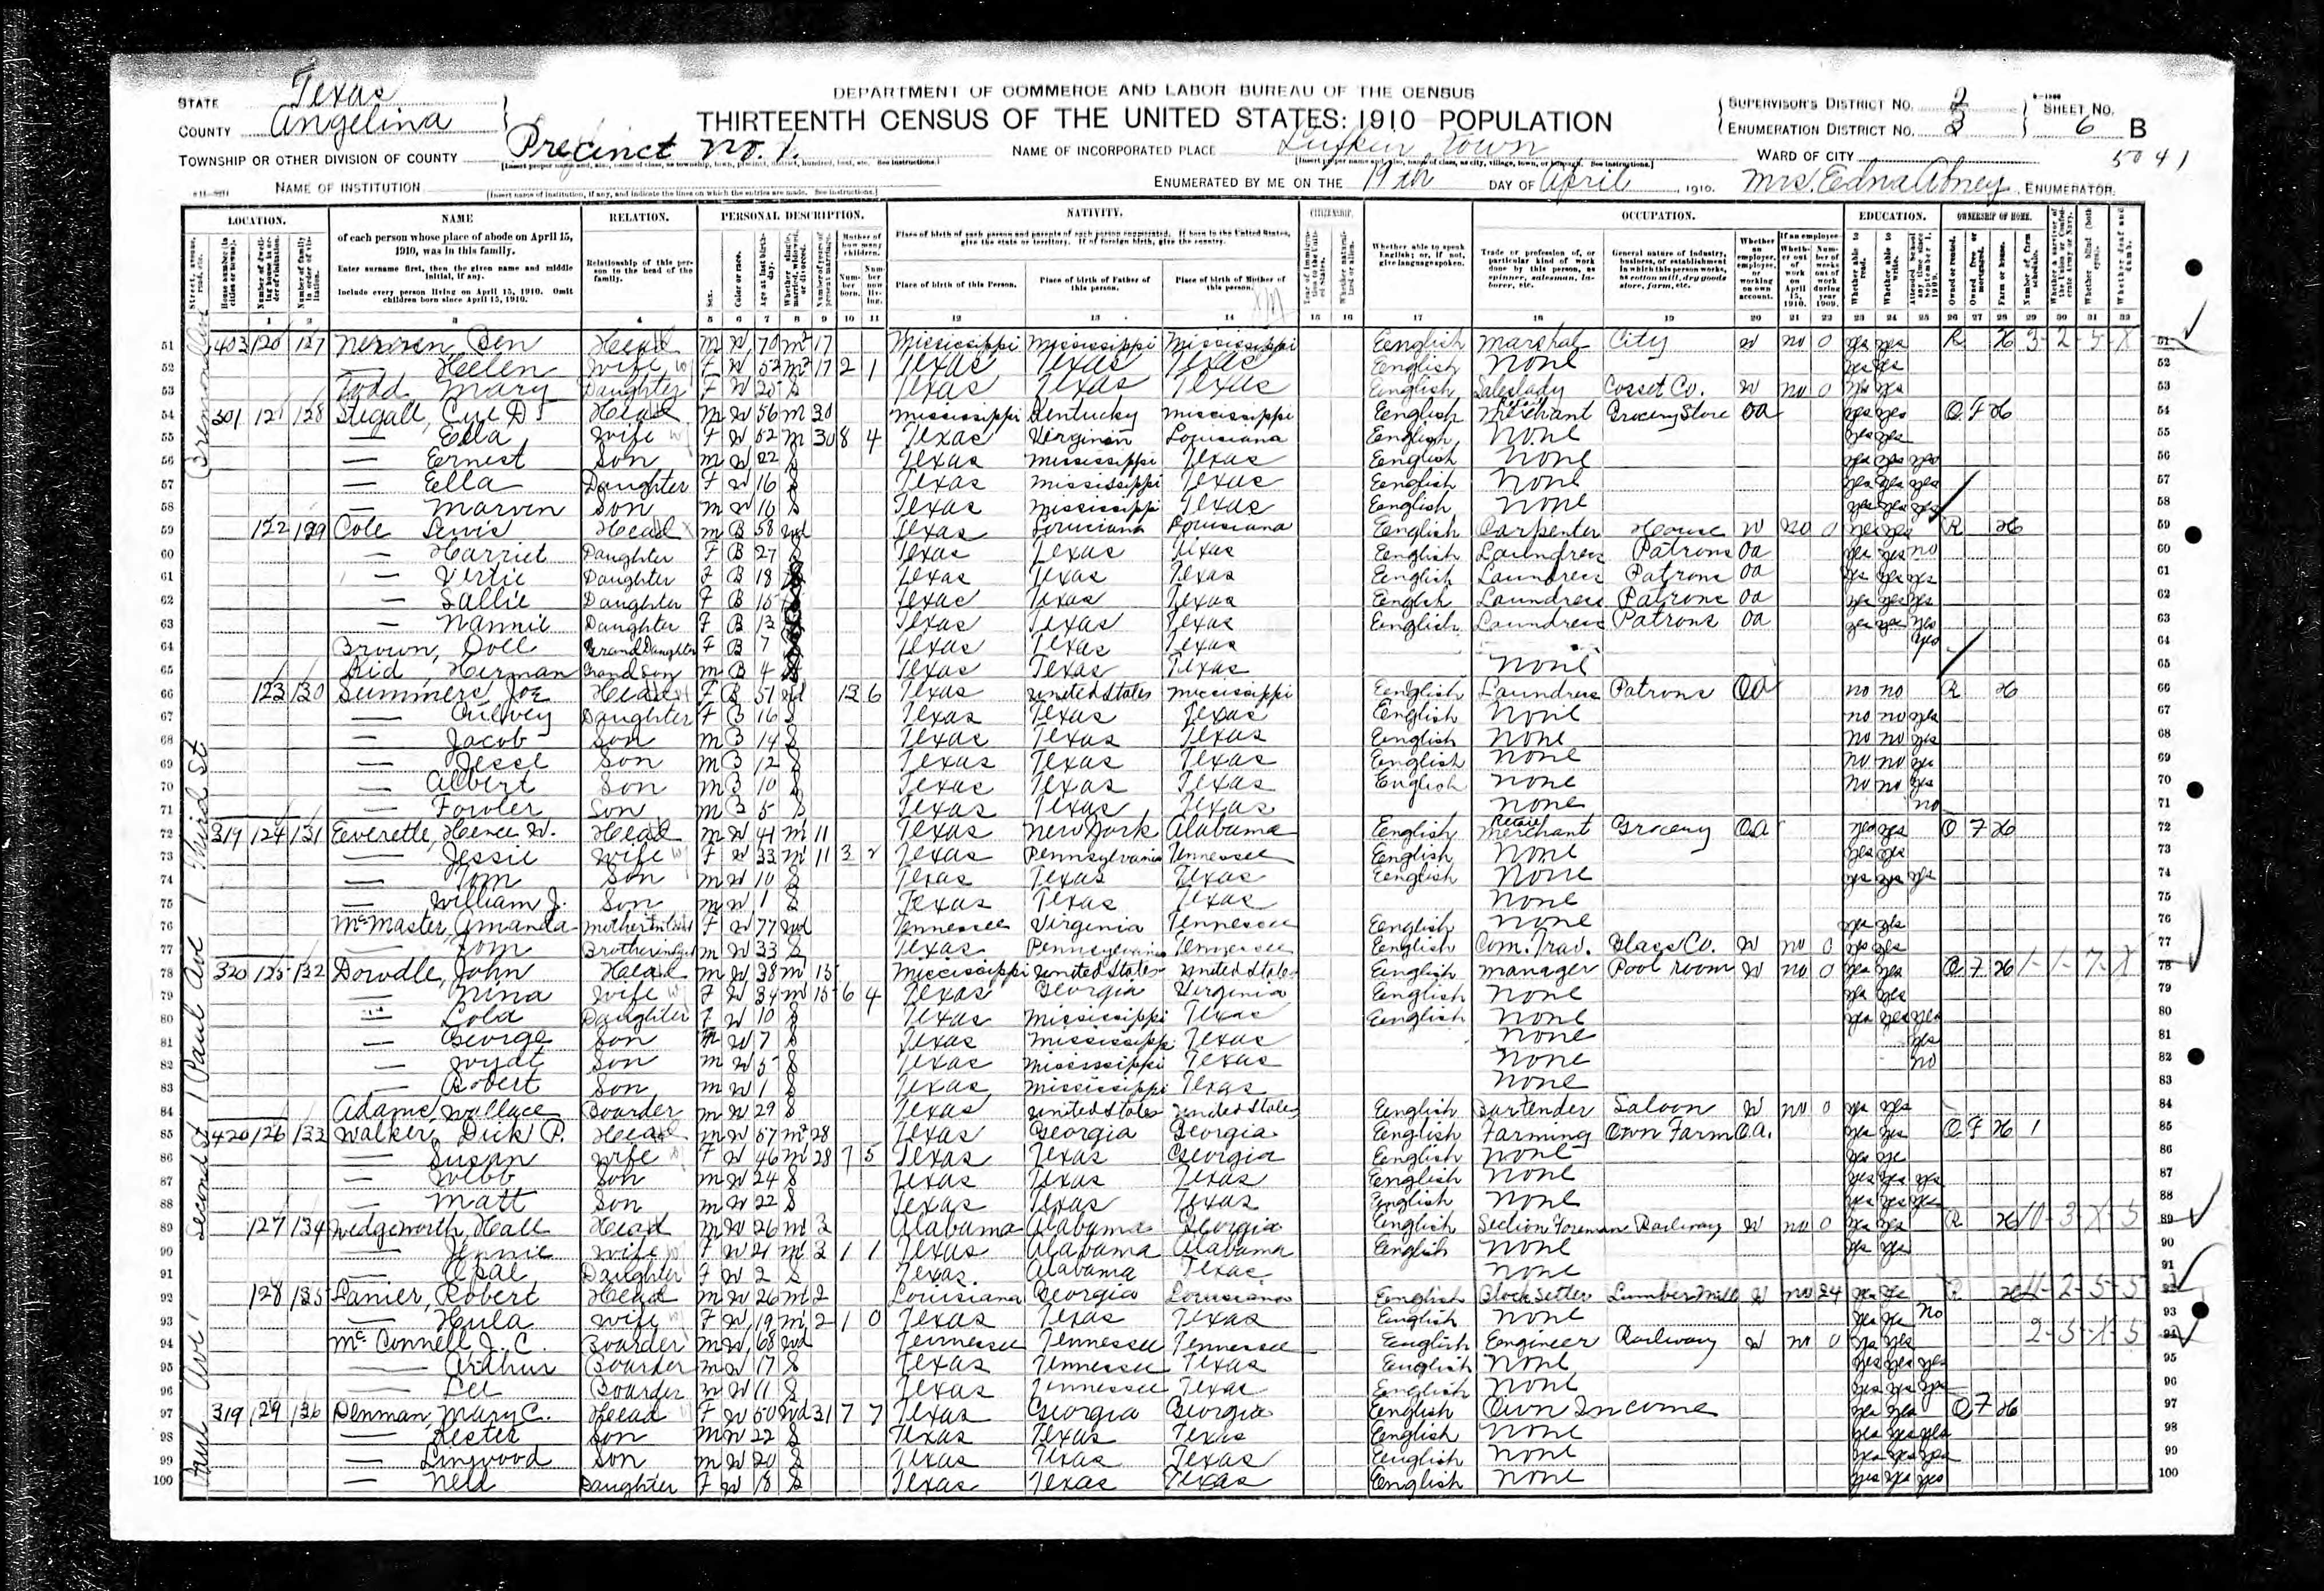 DEPARTMENT OF COMMERCE AND LABOR BUREAU OF THE CENSUS
THIRTEENTH CENSUS OF THE UNITED STATES: 1910 POPULATION
STATE Texas
COUNTY Angelina
TOWNSHIP OR OTHER DIVISION OF COUNTY Precinct No. 1.
NAME OF INSTITUTION
NAME OF INCORPORATED PLACE Lufkin Town
ENUMERATED BY ME ON THE 19th DAY OF April, 1910. Mrs. Edna Abney, ENUMERATOR.
SUPERVISOR'S DISTRICT No. 2
ENUMERATION DISTRICT No. 3
SHEET No. 6 B
WARD OF CITY
5041
LOCATION. NAME RELATION. PERSONAL DESCRIPTION. NATIVITY. CITIZENSHIP. OCCUPATION. EDUCATION. OWNERSHIP OF HOME.
of each person whose place of abode on April 15, 1910, was in this family.
Enter surname first, then the given name and middle initial, if any.
Include every person living on April 15, 1910. Omit children born since April 15, 1910.
Relationship of this person to the head of the family.
Place of birth of this Person. Place of birth of Father of this person. Place of birth of Mother of this person.
Whether able to speak English; or, if not, give language spoken.
51 403 120 127 Ben Head M W 70 M2 17 Mississippi Mississippi Mississippi English Marshal City W no 0 yes yes R H 3-2-5-X 51
52 — Helen Wife F W 52 M2 17 2 1 Texas Texas Texas English None yes yes 52
53 Todd Mary Daughter F W 25 S Texas Texas Texas English Saleslady W no 0 yes yes 53
54 301 121 128 Stegall, D Head M W 56 M 30 Mississippi Kentucky Mississippi English Retail Merchant Grocery Store OA yes yes O F H 54
55 — Ella Wife F W 52 M 30 8 4 Texas Virginia Louisiana English None yes yes 55
56 — Ernest Son M W 22 S Texas Mississippi Texas English None yes yes yes 56
57 — Ella Daughter F W 16 S Texas Mississippi Texas English None yes yes yes 57
58 — Marvin Son M W 16 S Texas Mississippi Texas English None yes yes yes 58
59 122 129 Cole Lewis Head M B 58 Wd Texas Louisiana Louisiana English Carpenter House W no 0 yes yes R H 59
60 — Harriet Daughter F B 27 S Texas Texas Texas English Laundress Patrons OA yes yes no 60
61 — Vertie Daughter F B 18 S Texas Texas Texas English Laundress Patrons OA yes yes yes 61
62 — Sallie Daughter F B 15 S Texas Texas Texas English Laundress Patrons OA yes yes yes 62
63 — Nannie Daughter F B 13 S Texas Texas Texas English Laundress Patrons OA yes yes yes 63
64 Brown, Doll Grand Daughter F B 7 S Texas Texas Texas yes 64
65 Kid, Herman Grand Son M B 4 S Texas Texas Texas None 65
66 123 130 Summers, Joe Head F B 51 Wd 13 6 Texas United States Mississippi English Laundress Patrons OA no no R H 66
67 — Daughter F B 16 S Texas Texas Texas English None no no yes 67
68 — Jacob Son M B 14 S Texas Texas Texas English None no no yes 68
69 — Jesse Son M B 12 S Texas Texas Texas English None no no yes 69
70 — Albert Son M B 10 S Texas Texas Texas English None no no yes 70
71 — Fowler Son M B 5 S Texas Texas Texas None no 71
72 319 124 131 Everette, W. Head M W 41 M 11 Texas New York Alabama English Retail Merchant Grocery OA yes yes O F H 72
73 — Jessie Wife F W 33 M 11 3 2 Texas Pennsylvania Tennessee English None yes yes 73
74 — Tom Son M W 10 S Texas Texas Texas English None yes yes yes 74
75 — William J. Son M W 1 S Texas Texas Texas None 75
76 McMaster, Amanda Mother in law F W 77 Wd Tennessee Virginia Tennessee English None yes yes 76
77 — Tom Brother in law M W 33 S Texas Pennsylvania Tennessee English Com. Trav. Glass Co. W no 0 yes yes 77
78 320 125 132 Dowdle, John Head M W 38 M 15 Mississippi United States United States English Manager Pool room W no 0 yes yes O F H 1-1-7-X 78
79 — Nina Wife F W 34 M 15 6 4 Texas Georgia Virginia English None yes yes 79
80 — Lola Daughter F W 10 S Texas Mississippi Texas English None yes yes yes 80
81 — George Son M W 7 S Texas Mississippi Texas None yes 81
82 — Son M W 5 S Texas Mississippi Texas None no 82
83 — Robert Son M W 1 S Texas Mississippi Texas None 83
84 Adams, Wallace Boarder M W 29 S Texas United States United States English Bartender Saloon W no 0 yes yes 84
85 420 126 133 Walker, Dick P. Head M W 57 M2 28 Texas Georgia Georgia English Farming Own Farm O.A. yes yes O F H 1 85
86 — Susan Wife F W 46 M 28 7 5 Texas Texas Georgia English None yes ye 86
87 — Webb Son M W 24 S Texas Texas Texas English None yes yes yes 87
88 — Matt Son M W 22 S Texas Texas Texas English None yes yes yes 88
89 127 134 Wedgeworth, Hall Head M W 26 M 3 Alabama Alabama Georgia English Section Foreman Railway W no 0 yes yes R H 10-3-X-5 89
90 — Jennie Wife F W 21 M 3 1 1 Texas Alabama Alabama English None yes yes 90
91 — Opal Daughter F W 2 S Texas Alabama Texas None 91
92 128 135 Lanier, Robert Head M W 26 M 2 Louisiana Georgia Louisiana English Block Setter Lumber Mill W no 24 yes ye R H 4-2-5-5 92
93 — Hula Wife F W 19 M 2 1 0 Texas Texas Texas English None yes ye No 93
94 McConnell J. C. Boarder M W 68 Wd Tennessee Tennessee Tennessee English Engineer Railway W no 0 yes yes 2-5-X-5 94
95 — Arthur Boarder M W 17 S Texas Tennessee Texas English None yes yes yes 95
96 — Lee Boarder M W 11 S Texas Tennessee Texas English None yes yes yes 96
97 319 129 136 Denman, Mary C. Head F W 50 Wd 31 7 7 Texas Georgia Georgia English Own Income yes yes O F H 97
98 — Lester Son M W 22 S Texas Texas Texas English None yes yes yes 98
99 — Linwood Son M W 20 S Texas Texas Texas English None yes yes yes 99
100 — Nell Daughter F W 18 S Texas Texas Texas English None yes yes yes 100
Third St.
Paul Ave
Second St
Paul Ave